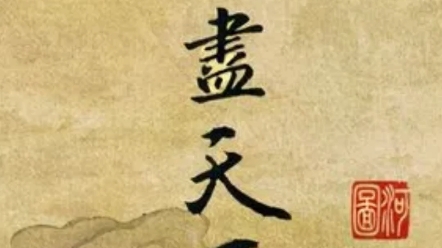 盡天
河圖